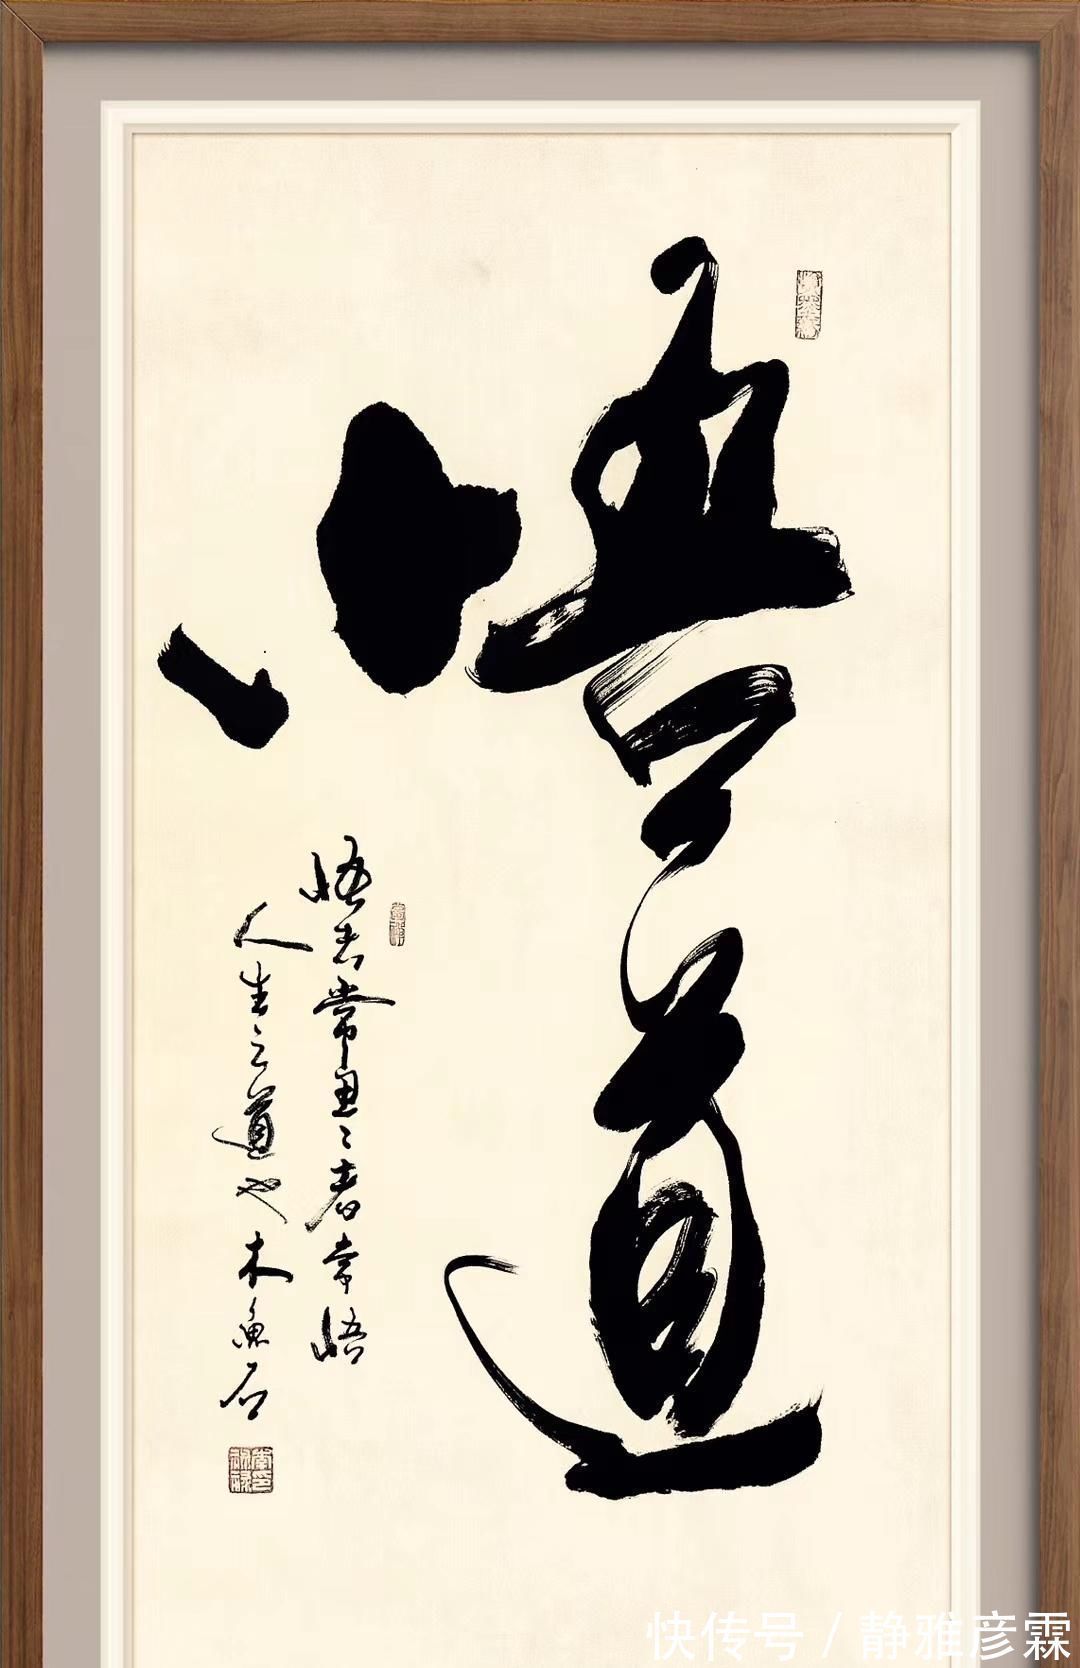 悟道
悟者常思々者常悟
人生之道也木鱼石
快传号 / 静雅彦霖